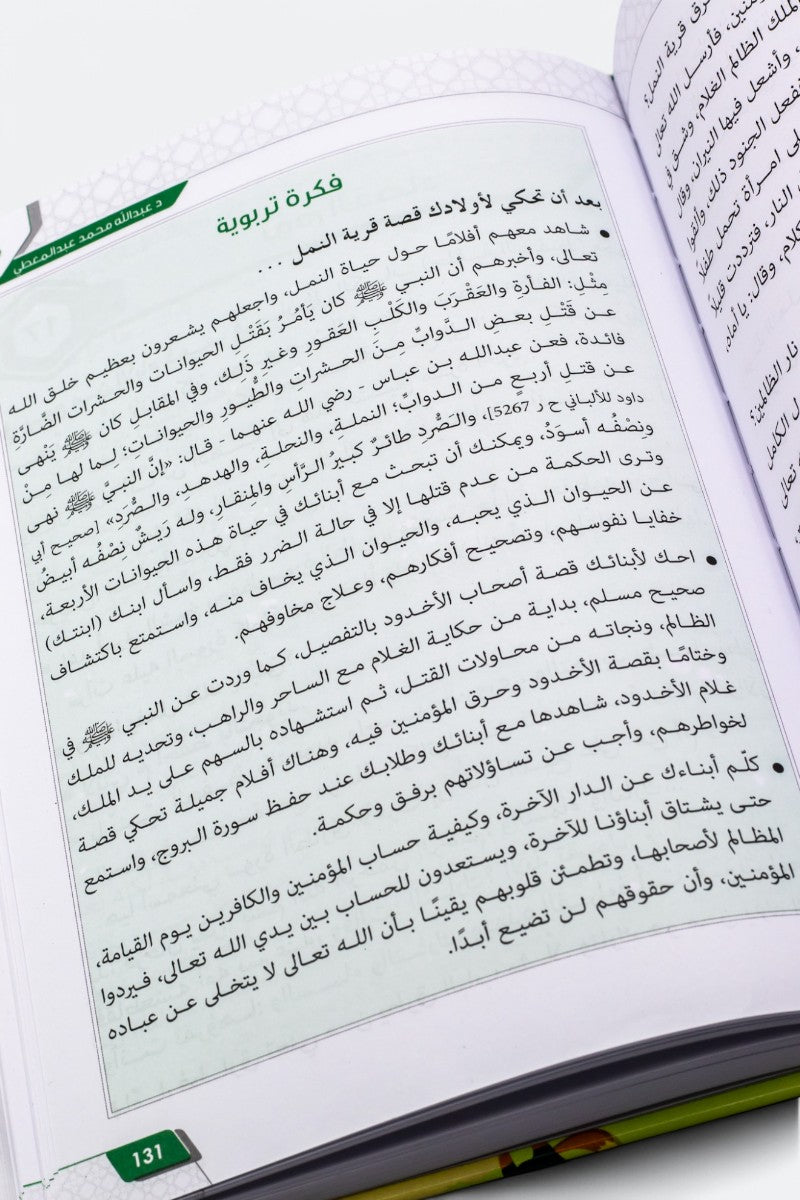 د عبدالله محمد عبدالمعطي
فكرة تربوية
بعد أن تحكي لأولادك قصة قرية النمل ...
• شاهد معهم أفلامًا حول حياة النمل، واجعلهم يشعرون بعظيم خلق الله
تعالى، وأخبرهم أن النبي ﷺ كان يَأمُرُ بَقَتْلِ الحيوانات والحشرات الضَّارَّةِ
مِثْلِ: الفأرةِ والعَقْرَبَ والكَلْبِ العَقورِ وغيرِ ذَلِك، وفي المقابلِ كان ﷺ يَنْهى
عن قَتْلِ بعضِ الدَّوابِّ مِنَ الحشراتِ والطُّيورِ والحيواناتِ؛ لِما لها مِنْ
فائدة، فعن عبدالله بن عباس - رضي الله عنهما - قال: «إنَّ النبيَّ ﷺ نهى
عن قتلِ أربعٍ من الدوابِّ؛ النملةِ، والنحلةِ، والهدهدِ، والصُّرَدِ» [صحيح أبي
داود للألباني ح ر 5267]، والصُّرَدِ طائرٌ كبيرُ الرَّأسِ والمِنقارِ، وله رَيشٌ نِصْفُه أبيضُ
ونِصْفُه أسوَدُ، ويمكنك أن تبحث مع أبنائك في حياة هذه الحيوانات الأربعة،
وترى الحكمة من عدم قتلها إلا في حالة الضرر فقط، واسأل ابنك (ابنتك)
عن الحيوان الذي يحبه، والحيوان الذي يخاف منه، واستمتع باكتشاف
خفايا نفوسهم، وتصحيح أفكارهم، وعلاج مخاوفهم.
• احك لأبنائك قصة أصحاب الأخدود بالتفصيل، كما وردت عن النبي ﷺ في
صحيح مسلم، بداية من حكاية الغلام مع الساحر والراهب، وتحديه للملك
الظالم، ونجاته من محاولات القتل، ثم استشهاده بالسهم على يد الملك،
وختامًا بقصة الأخدود وحرق المؤمنين فيه، وهناك أفلام جميلة تحكي قصة
غلام الأخدود، شاهدها مع أبنائك وطلابك عند حفظ سورة البروج، واستمع
لخواطرهم، وأجب عن تساؤلاتهم برفق وحكمة.
• كلّم أبناءك عن الدار الآخرة، وكيفية حساب المؤمنين والكافرين يوم القيامة،
حتى يشتاق أبناؤنا للآخرة، ويستعدون للحساب بين يدي الله تعالى، فيردوا
المظالم لأصحابها، وتطمئن قلوبهم يقينًا بأن الله تعالى لا يتخلى عن عباده
المؤمنين، وأن حقوقهم لن تضيع أبدًا.
131
قرية النمل؟
فأرسل الله تعالى
الملك الظالم الغلام، وشق في
وأشعل فيها النيران، وقال
الجنود ذلك، وألقوا
امرأة تحمل طفلاً
النار، فترددت قليلاً
وقال: يا أماه،
نار الظالمين؟
الكامل
تعالى